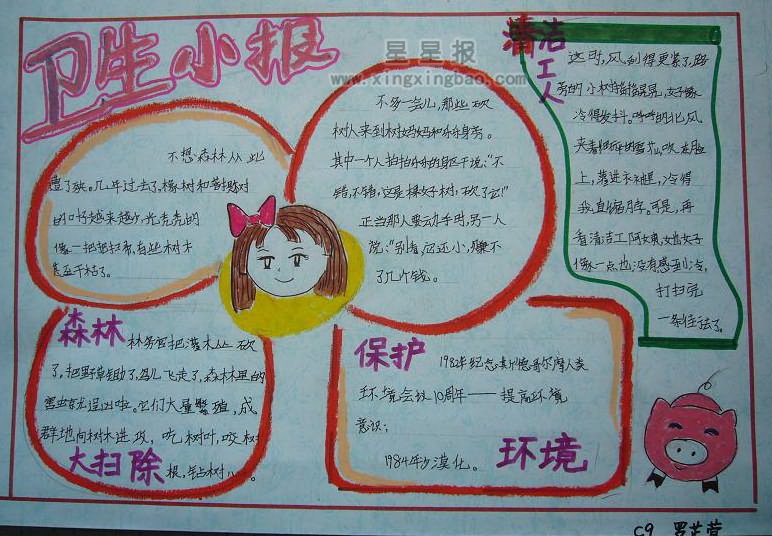 卫生小报
星星报
www.xingxingbao.com
不想森林从此
遭了殃。几年过去了,橡树和菩提树
的叶子越来越少,光秃秃的
像一把把扫帚,有些树木
甚至干枯了。
不多一会儿,那些砍
树人来到树妈妈和乐乐身旁。
其中一个人拍拍乐乐的身区干说:“不
错,不错,这是棵女子树,砍了它!”
正当那人要动手时,另一人
说:“别看,它还小,赚不
了几个钱。
清洁工人
这时,风刮得更紧了,路
旁的小树摇摇晃晃,女子像
冷得发抖。呼呼的北风
夹着
的雪花,吹在脸
上,落进衣袖里,冷得
我直缩脖子。可是,再
看清洁工阿姨,她女子
像一点也没有感到冷,
打扫完
一条街了。
森林
林务官把灌木丛砍
了,把野草锄了,鸟儿飞走了,森林里的
害虫
逞凶啦。它们大量繁殖,成
群地向树木进攻,吃树叶,咬树
根,钻树心。
大扫除
保护
1982年纪念斯德哥尔摩人类
环境会议10周年——提高环境
意识;
1984年沙漠化。
环境
C9 罗芷萱